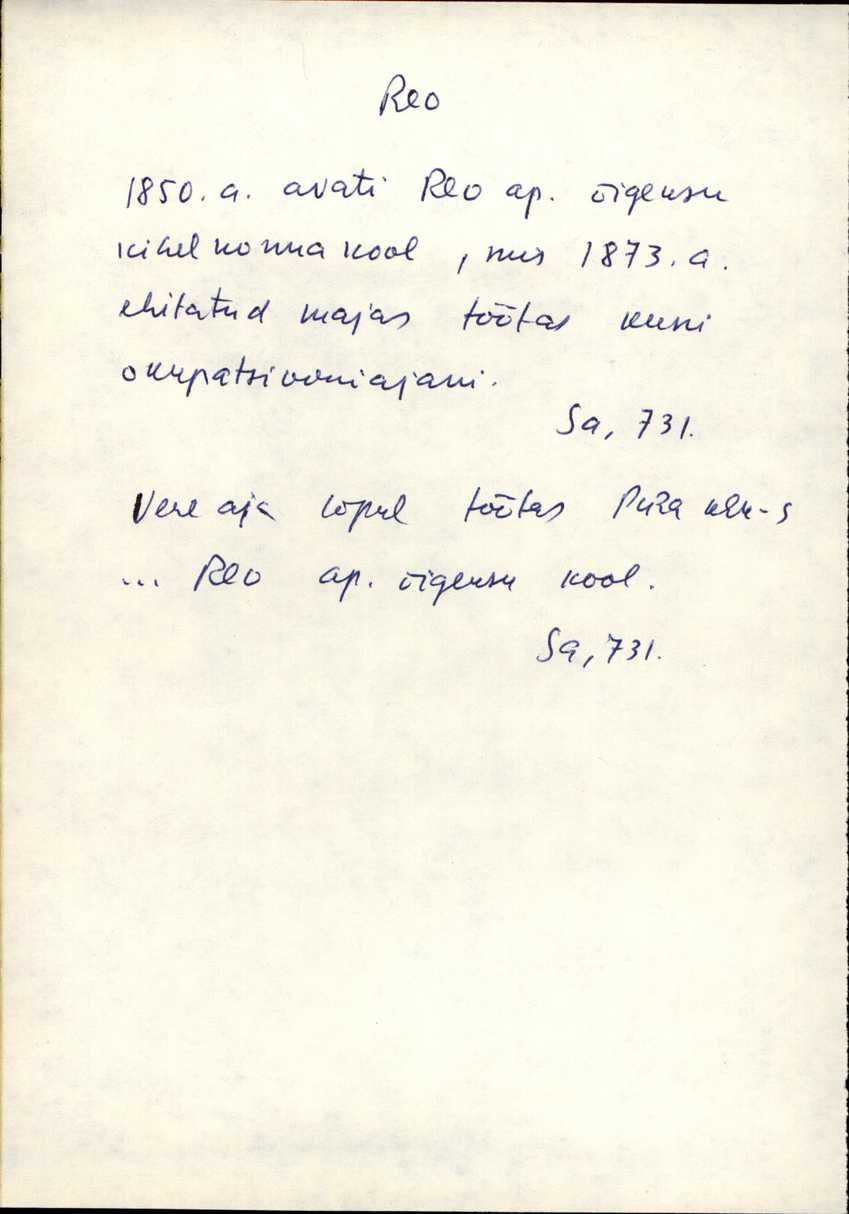 Reo
1850.a. avati Reo ap. õigeusu
kihelkonna kool, mis 1873.a.
ehitatud majas töötas kuni
okupatsiooniajani.
Sa, 731.
Vene aja lõpul töötas Püha khk-s
... Reo ap. õigeusu kool.
Sa, 731.